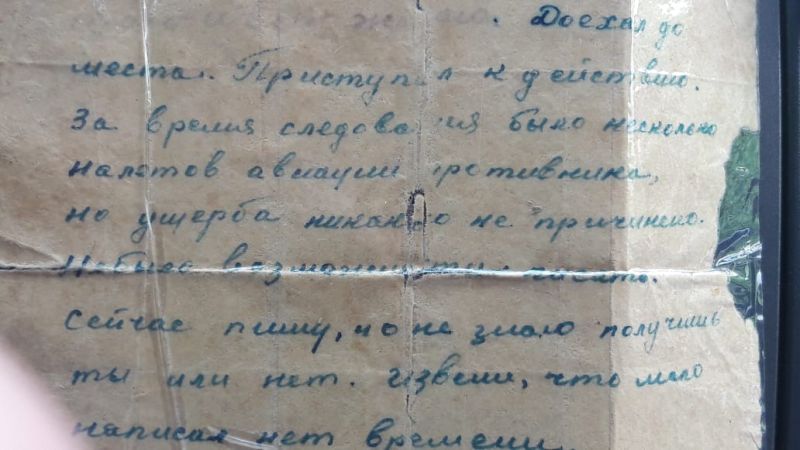 Доехал до
места. Приступил к действию.
За время следования было несколько
налётов авиации противника,
но ущерба никакого не причинено.
Небыло возможности писать.
Сейчас пишу, но не знаю получишь
ты или нет. Извени, что мало
написал нет времени.